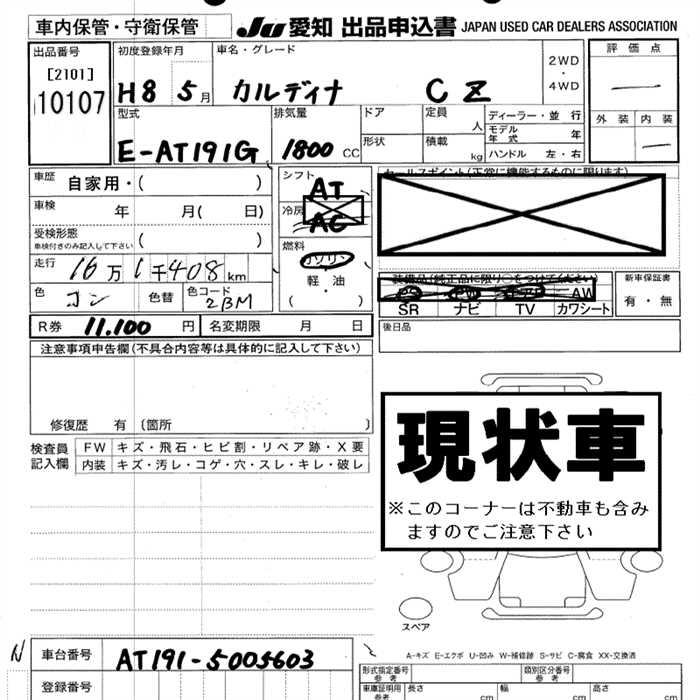 車内保管・守衛保管 JU 愛知 出品申込書 JAPAN USED CAR DEALERS ASSOCIATION
出品番号 初度登録年月 車名・グレード 2WD・4WD 評価点
[2101] H8 5月 カルディナ CZ —
10107 型式 排気量 ドア 定員 人 ディーラー・並行 外装 内装
E-AT191G 1800 CC 形状 積載 kg モデル年式 年 —
ハンドル 左・右
車歴 自家用・( ) シフト AT セールスポイント(正常に機能するものに限ります)
車検 年 月( 日) 冷房 AC
受検形態 ( )
車検付きのみ記入して下さい
燃料 ガソリン
走行 16万1千408km 軽・油 装備品(純正品に限り○をつけてください) 新車保証書
色 コン 色替 色コード 2BM ( ・ ) AW 有・無
SR ナビ TV カワシート
R券 11,100円 名変期限 月 日 後日品
注意事項申告欄(不具合内容等は具体的に記入して下さい)
修復歴 有 〔箇所 〕
現状車
※このコーナーは不動車も含み
ますのでご注意下さい
検査員記入欄 FW キズ・飛石・ヒビ割・リペア跡・X要
内装 キズ・汚レ・コゲ・穴・スレ・キレ・破レ
スペア
A-キズ E-エクボ U-凹み W-補修跡 S-サビ C-腐食 XX-交換済
N 車台番号 AT191-5005603 形式指定番号 参考 類別区分番号 参考
登録番号 車庫証明用 参考 長さ cm 幅 cm 高さ cm